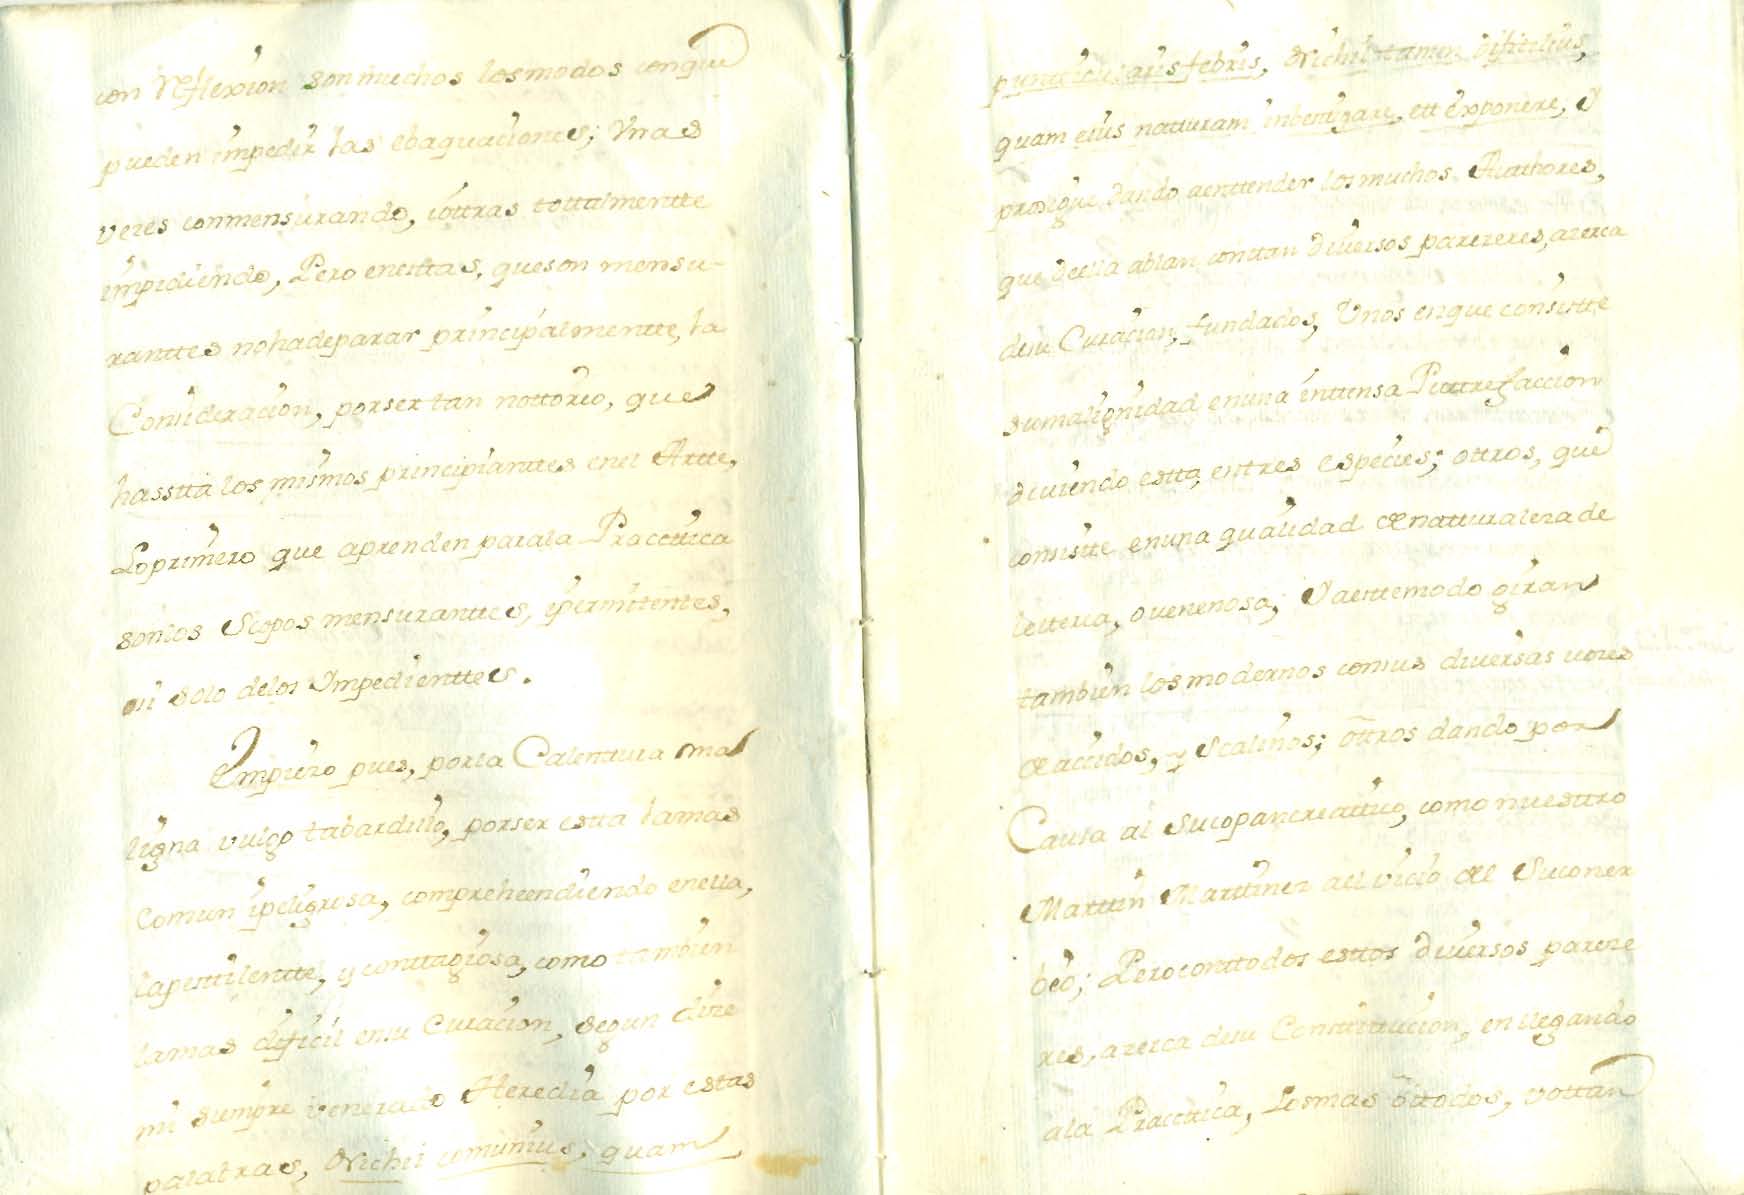 con Reflexion son muchos los modos conque
pueden impedir las ebaquaciones; Vnas
vezes conmensurando, iottras tottalmentte
impidiendo, Pero enesttas, queson mensu-
ranttes nohadeparar principalmentte, la
Consideracion, porser tan nottorio, que
hassta los mismos principianttes enel Artte,
Loprimero que aprenden parala Practtica
sonlos Scopos mensuranttes, ipermitentes,
ni solo delos Ympedienttes.
Empiezo pues, porla Calenttura ma
ligna vulgo tabardillo, porser estta lamas
Comun ipeligrosa, comprehendiendo enella,
lapesttilentte, y conttagiosa, como tambien
lamas dificil ensu Curacion, segun dize
mi siempre venerado Heredia por estas
palabras, Nichil comunius, quam
febris, Nichil tamen dificilius,
quam eius natturam inbestigare, ett exponere, Y
prosigue dando aenttender losmuchos Authores,
que deella ablan, conttan diversos parezeres, azerca
desu Curacion, fundados, Vnos enque consistte
sumalignidad enuna inttensa Puttrefaccion
diviendo estta, entres especies; ottros, que
consistte enuna qualidad denatturaleza de
letterea, ovenenosa; Yaestemodo giran
tambien los modernos consus diversas vozes
deaccidos, y Scalinos; ottros dando por
Causa al Sucopancreattico, como nuesttro
Marttin Marttinez aelvicio del Suconer
beo; Perocontodos esttos diversos pareze
res, azerca desu Consttitucion, enllegando
ala Practtica, Losmas ottodos, vottan